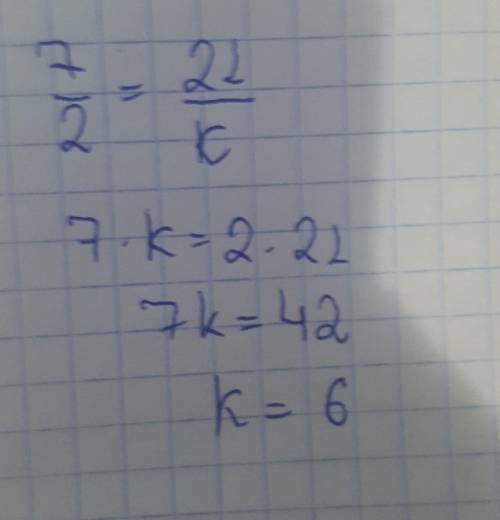 7/2 = 21/k
7 · k = 2 · 21
7k = 42
k = 6